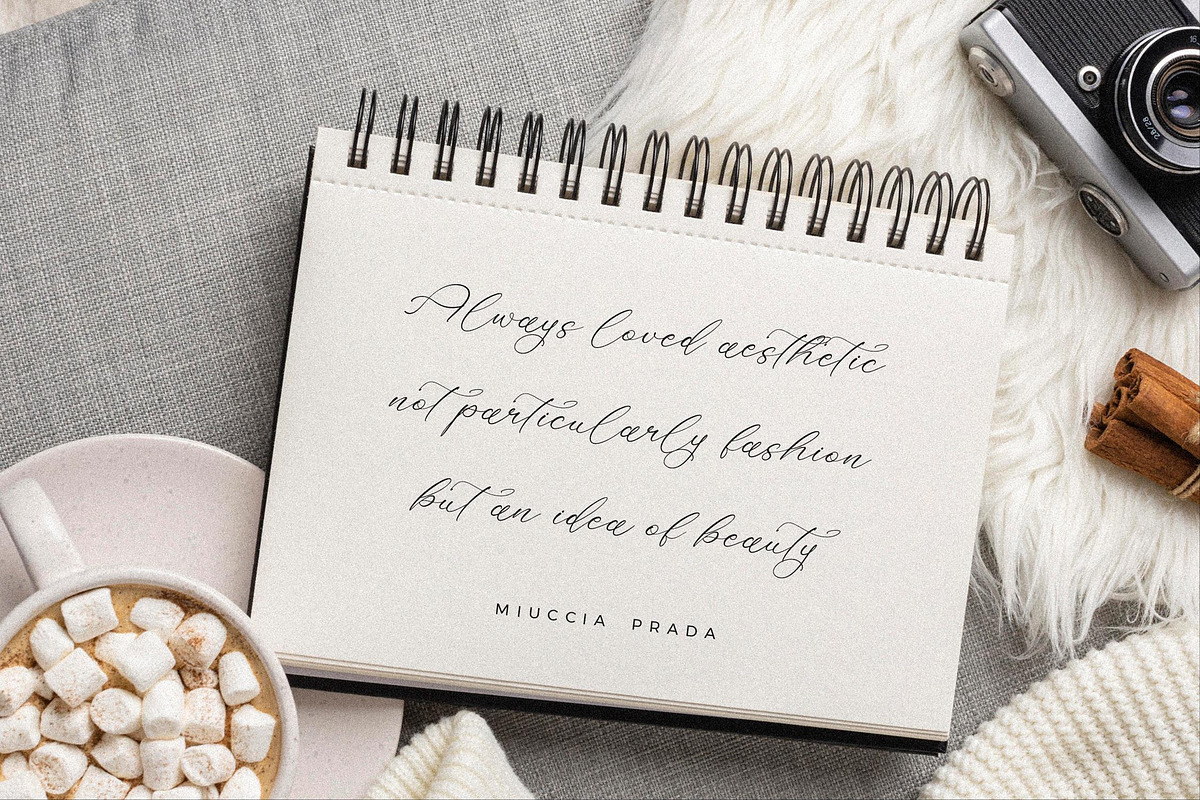 Always loved aesthetic
not particularly fashion
but an idea of beauty
MIUCCIA PRADA
28/28
16